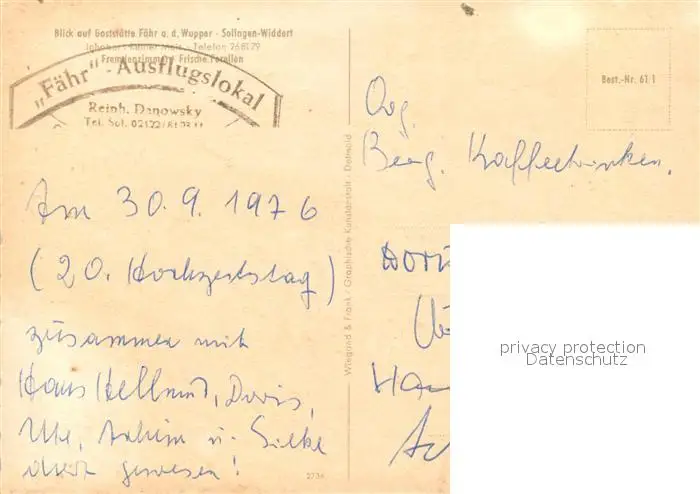 Blick auf Gaststätte Fähr a. d. Wupper - Solingen-Widdert
Telefon 268179
Fremdenzimmer Frische Forellen
„Fähr" - Ausflugslokal
Reinh. Danowsky
Tel. Sol. 02122/
Am 30. 9. 1976
(20. Hochzeitstag)
zusammen mit
Hans Hellmut, Doris,
Ute, Achim u. Silke
dort gewesen!
2734
Wiegand & Frank / Graphische Kunstanstalt - Detmold
Best.-Nr. 611
Org.
Berg. Kaffeetrinken.
privacy protection
Datenschutz